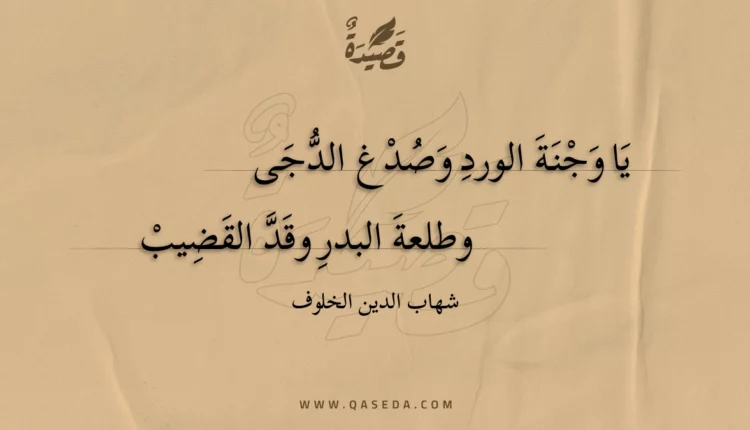 قَصِيدَةٌ
يَا وَجْنَةَ الوردِ وَصُدْغ الدُّجَى
وطلعةَ البدرِ وقَدَّ القَضِيبْ
شهاب الدين الخلوف
WWW.QASEDA.COM